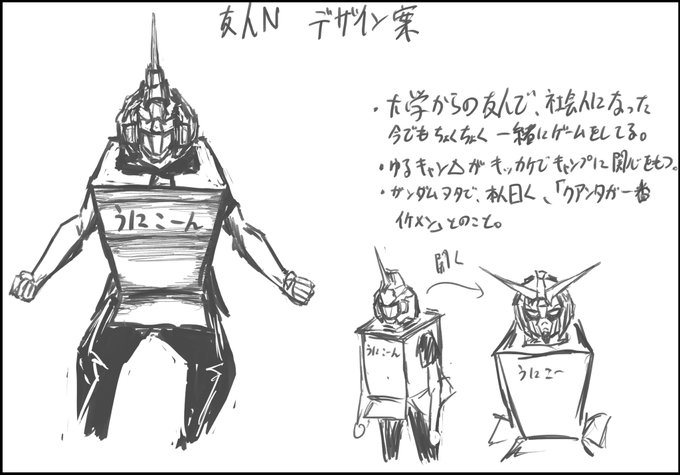 友人N デザイン案
・大学からの友人で、社会人になった
今でもちょくちょく一緒にゲームをしてる。
・ゆるキャン△がキッカケでキャンプに関心をもつ。
・ガンダムヲタで、本人曰く、「クアンタが一番
イケメン」とのこと。
うにこーん
開く
うにこーん
うにこー